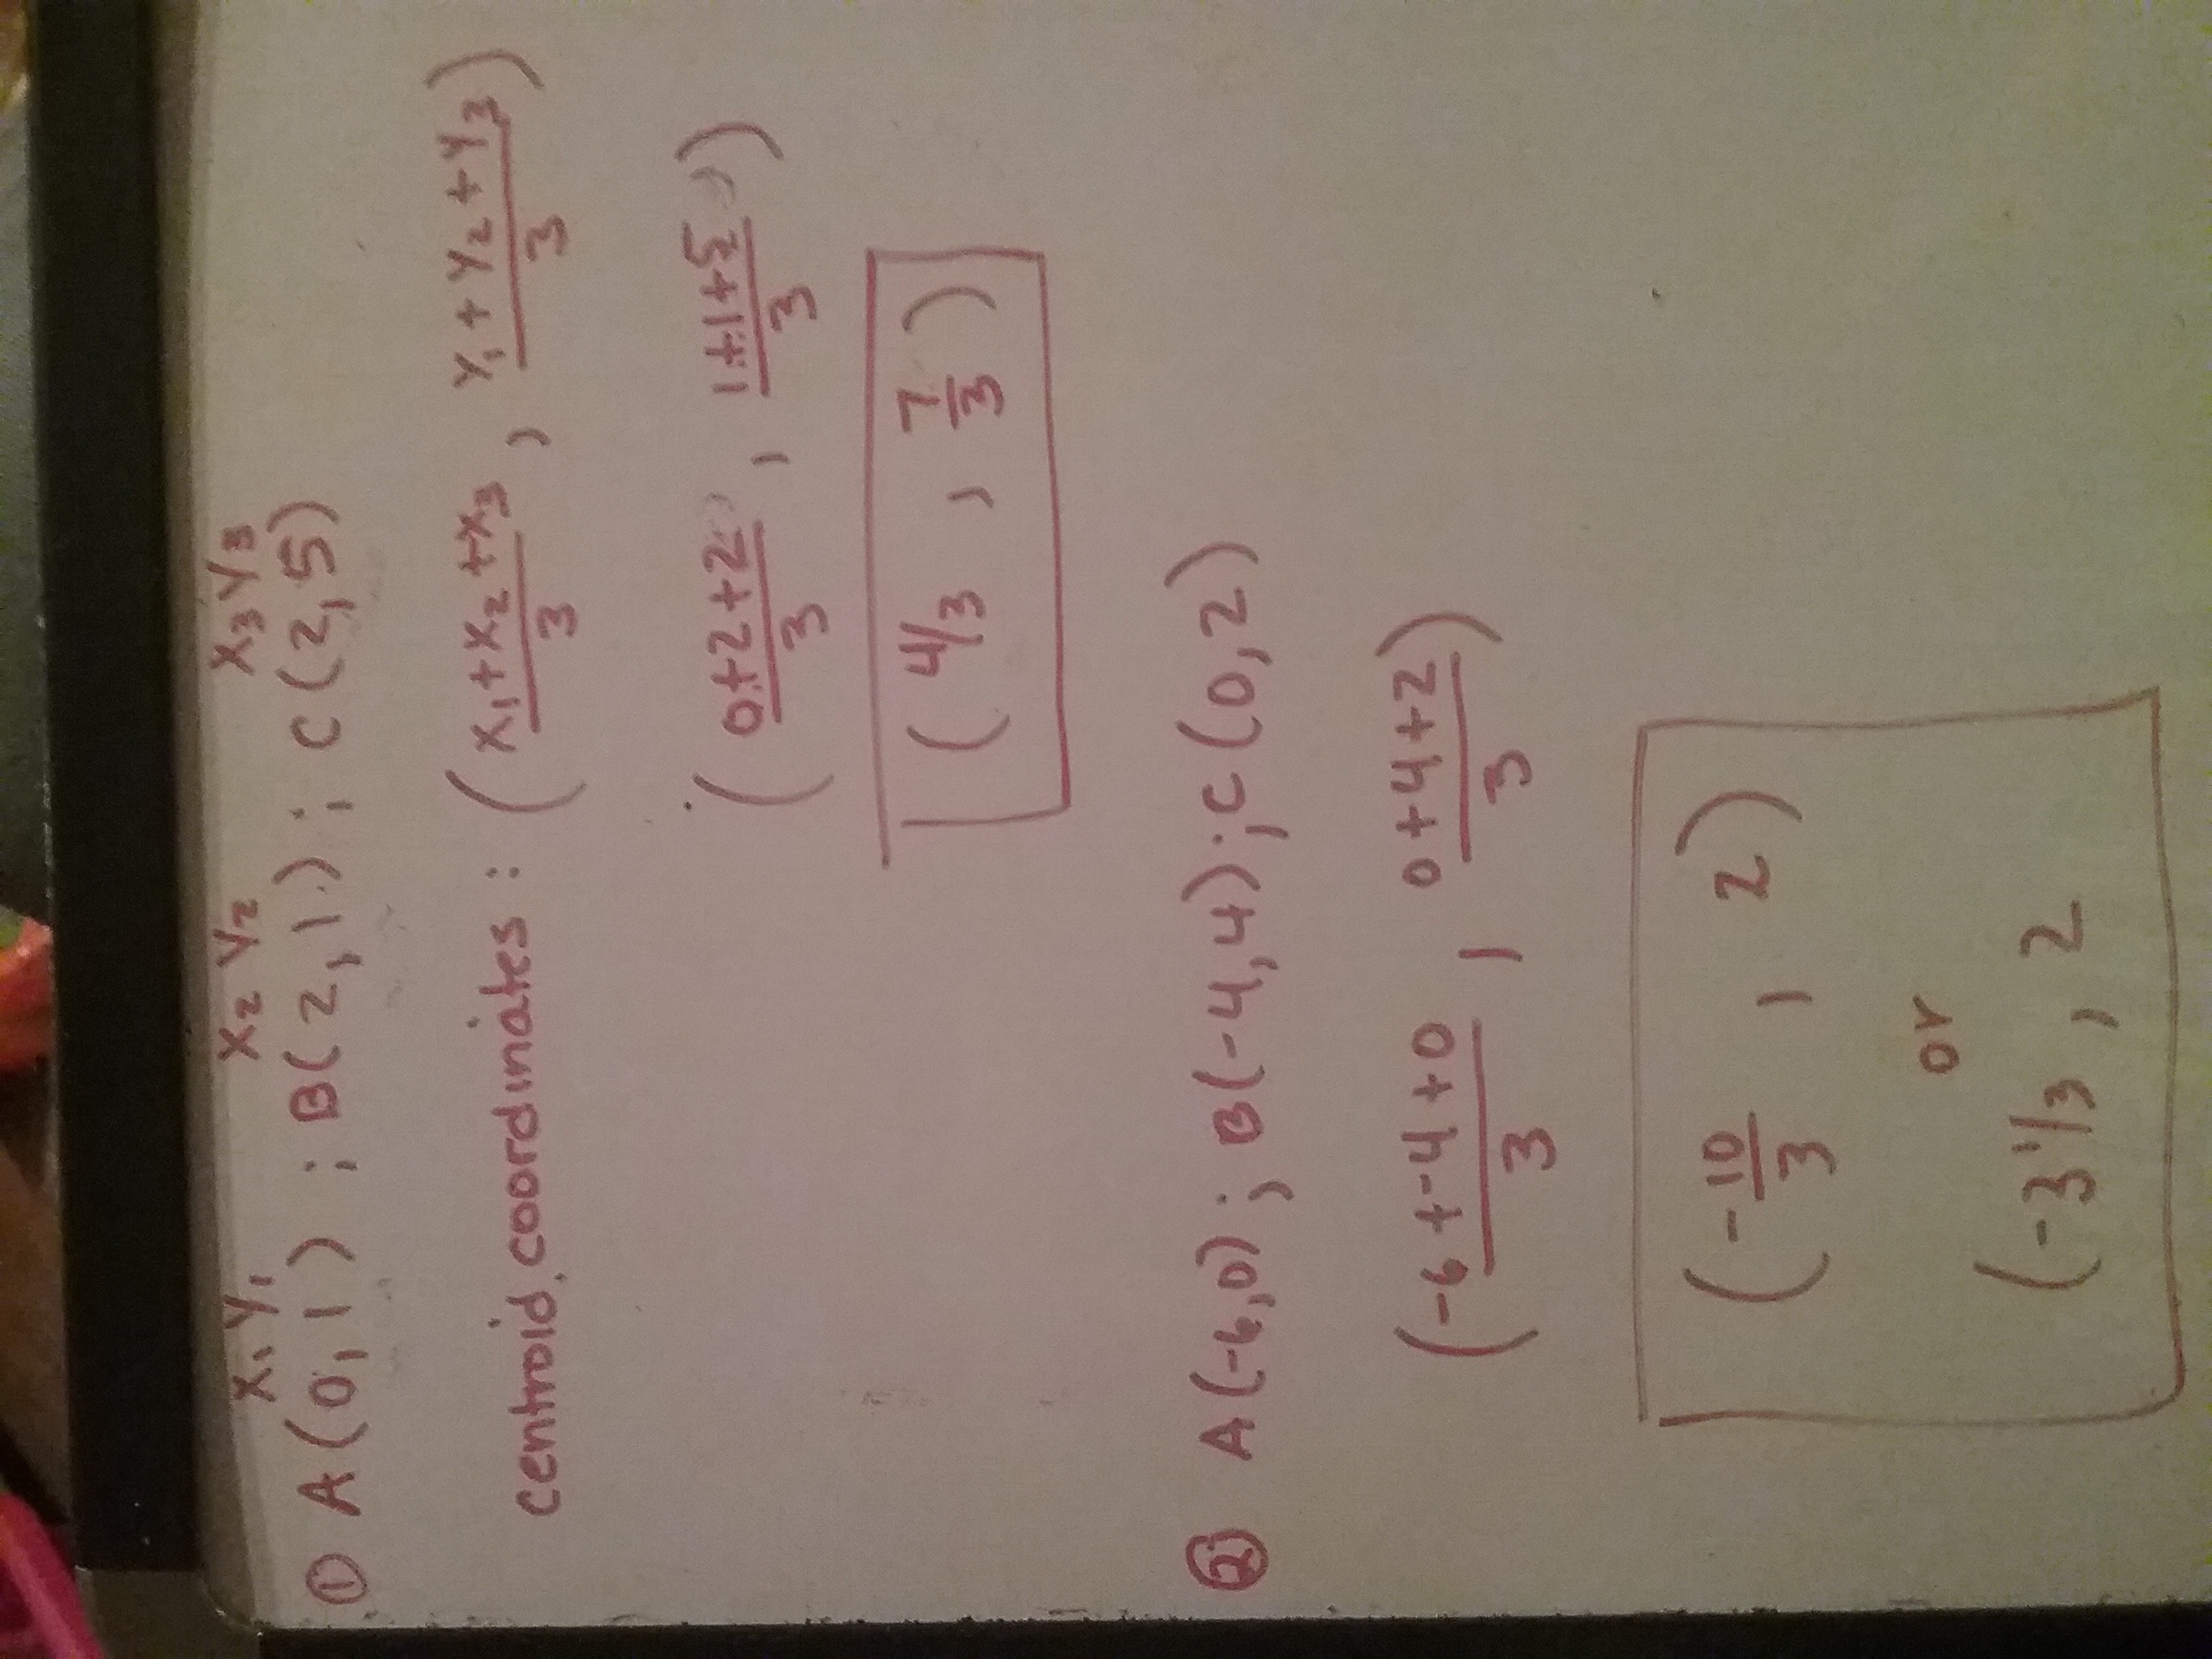 x₁ y₁ x₂ y₂ x₃ y₃
① A(0,1) ; B(2,1) ; C(2,5)
centroid coordinates : ( x₁+x₂+x₃ / 3 , y₁+y₂+y₃ / 3 )
( 0+2+2 / 3 , 1+1+5 / 3 )
( 4/3 , 7/3 )
② A(-6,0) ; B(-4,4) ; C(0,2)
( -6+-4+0 / 3 , 0+4+2 / 3 )
( -10/3 , 2 )
or
( -3 1/3 , 2